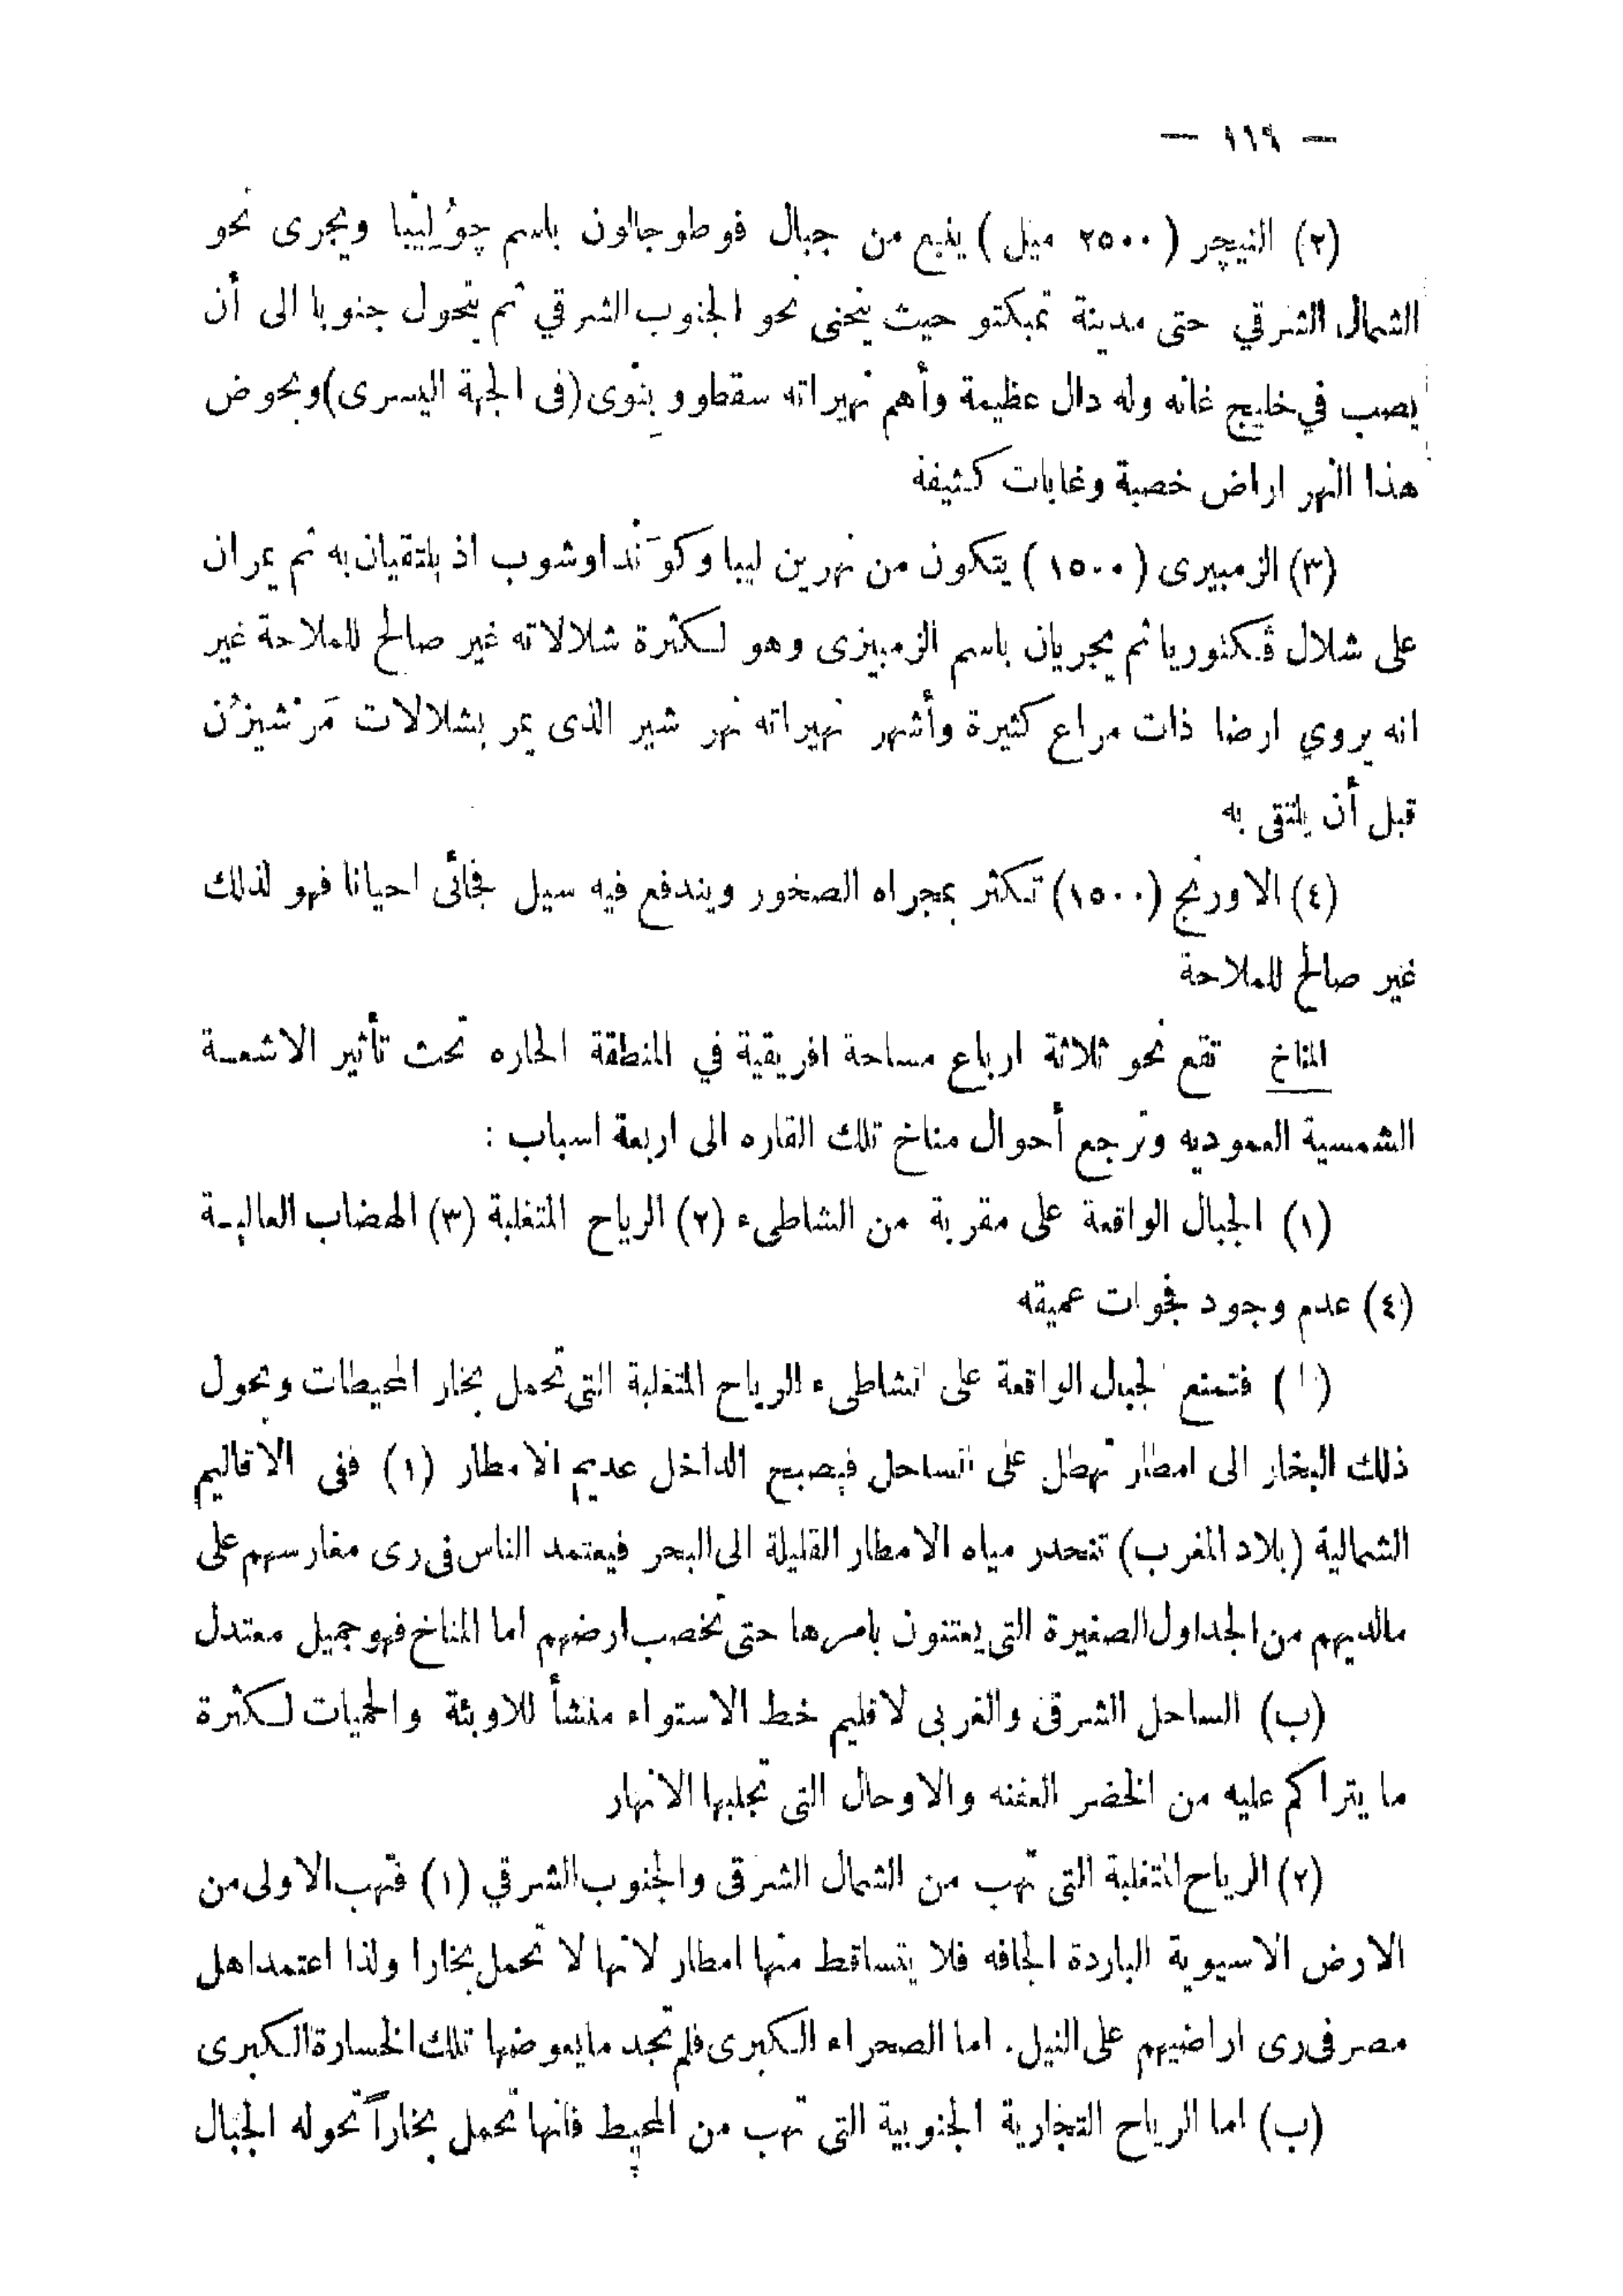 — ١٦٩ —
(٢) النيچر ( ٢٥٠٠ ميل ) ينبع من جبال فوطوجالون باسم چوُلِيْبا ويجرى نحو
الشمال الشرقي حتى مدينة تمبكتو حيث ينحنى نحو الجنوب الشرقي ثم يتحول جنوبا الى أن
يصب في خليج غانه وله دال عظيمة وأهم نهيراته سقطو و بِنْوى (فى الجهة اليسرى) وبحوض
هذا النهر اراض خصبة وغابات كثيفة
(٣) الزمبيرى ( ١٥٠٠ ) يتكون من نهرين ليبا وكوَنْدا وشوب اذ يلتقيان به ثم يمران
على شلال ڤكتوريا ثم يجريان باسم الزمبيزى وهو لكثرة شلالاته غير صالح للملاحة غير
انه يروي ارضا ذات مراع كثيرة وأشهر نهيراته نهر شير الذى يمر بشلالات مَرْشيزُن
قبل أن يلتقى به
(٤) الاورنج (١٥٠٠) تكثر بمجراه الصخور ويندفع فيه سيل فجائى احيانا فهو لذلك
غير صالح للملاحة
المناخ تقع نحو ثلاثة ارباع مساحة افريقية في المنطقة الحاره تحت تأثير الاشعة
الشمسية العموديه وترجع أحوال مناخ تلك القاره الى اربعة اسباب :
(١) الجبال الواقعة على مقربة من الشاطىء (٢) الرياح المتغلبة (٣) الهضاب العالية
(٤) عدم وجود فجوات عميقه
(١) فتمنع الجبال الواقعة على الشاطىء الرياح المتغلبة التى تحمل بخار المحيطات وتحول
ذلك البخار الى امطار تهطل على الساحل فيصبح الداخل عديم الامطار (١) ففى الاقاليم
الشمالية (بلاد المغرب) تنحدر مياه الامطار القليلة الى البحر فيعتمد الناس فى رى مغارسهم على
مالديهم من الجداول الصغيرة التى يعتنون بامرها حتى تخصب ارضهم اما المناخ فهو جميل معتدل
(ب) الساحل الشرقى والغربى لاقليم خط الاستواء منشأ للاوبئة والحميات لكثرة
ما يتراكم عليه من الخضر العفنه والاوحال التى تجلبها الانهار
(٢) الرياح المتغلبة التى تهب من الشمال الشرقى والجنوب الشرقي (١) فتهب الاولى من
الارض الاسيوية الباردة الجافه فلا يتساقط منها امطار لانها لا تحمل بخارا ولذا اعتمد اهل
مصر فى رى اراضيهم على النيل. اما الصحراء الكبرى فلم تجد مايعوضها تلك الخسارة الكبرى
(ب) اما الرياح التجارية الجنوبية التى تهب من المحيط فانها تحمل بخاراً تحوله الجبال